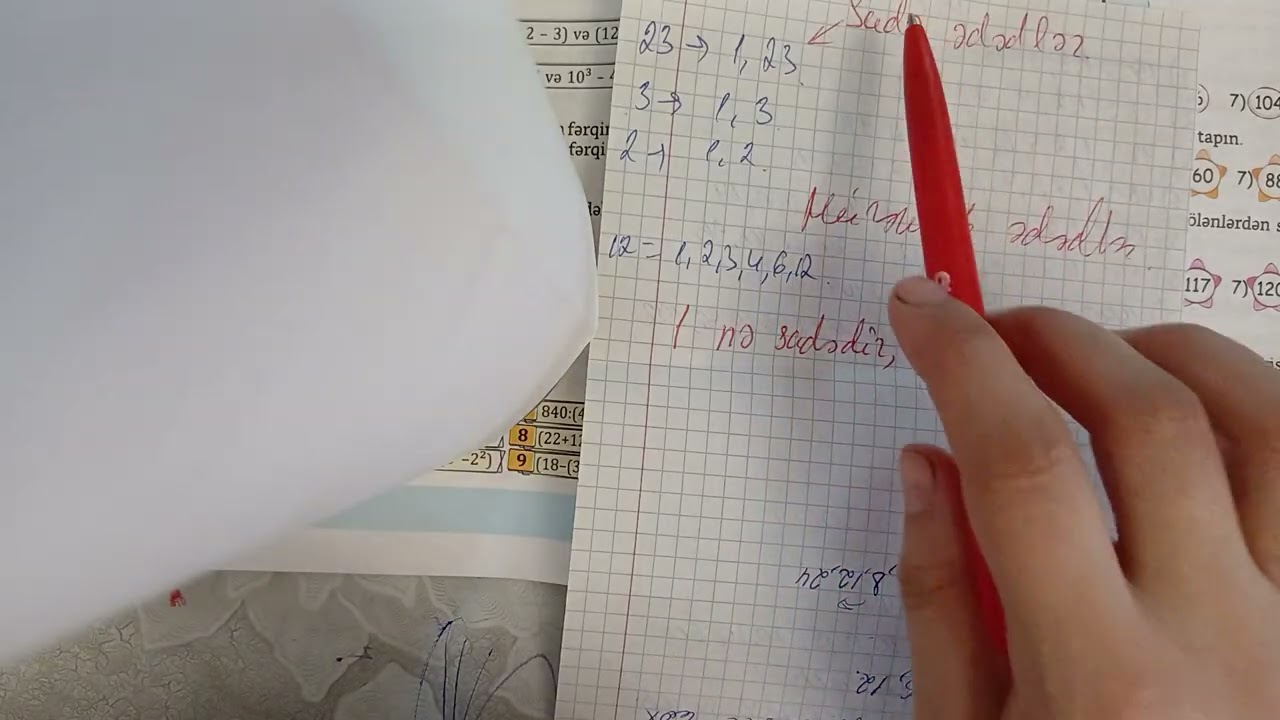 Sadə ədədlər.
23 → 1, 23.
3 → 1, 3
2 → 1, 2.
ədədlər.
12 = 1, 2, 3, 4, 6, 12.
1 nə sadədir,
8, 12, 24
12.
2 – 3) və (12
və 10³ –
fərqin
fərqi
840:(4
8 (22+12
–2²)
9 (18–(3
7) 104
tapın.
60 7) 88
ölənlərdən s
117 7) 120